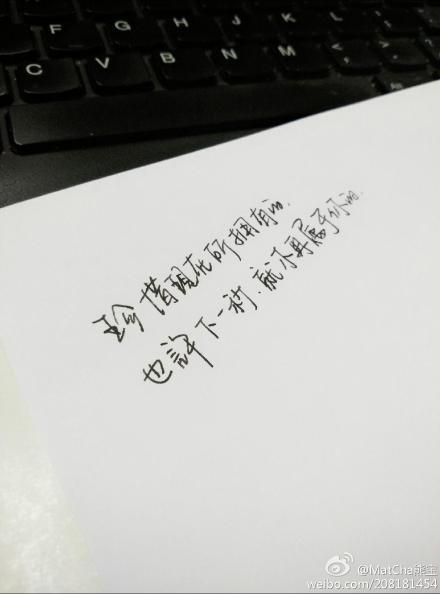 F G H J K L
C V B N M
珍惜现在所拥有的.
也許下一秒.就不再属于你的.
@MatCha熊宝
weibo.com/208181454